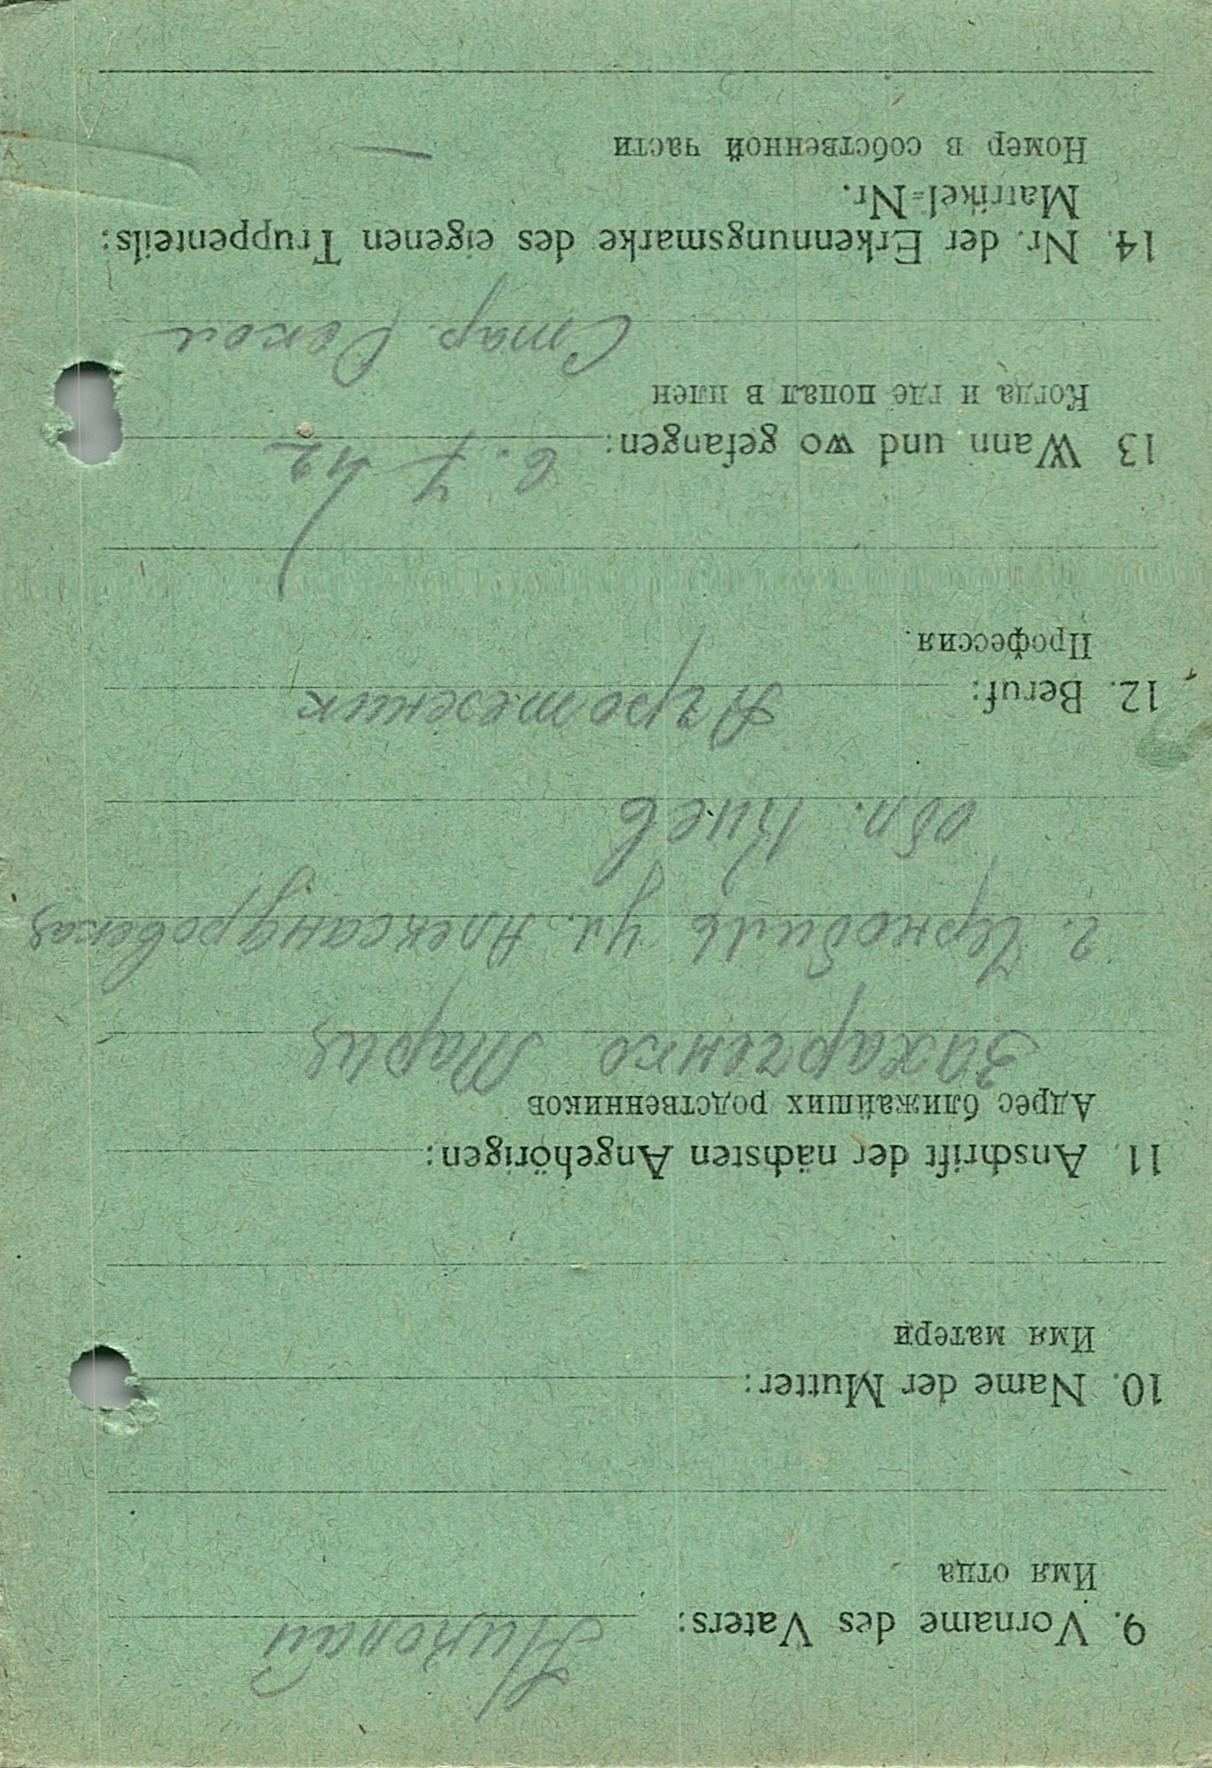 9. Vorname des Vaters: Николай
Имя отца
10. Name der Mutter:
Имя матери
11. Anschrift der nächsten Angehörigen:
Адрес ближайших родственников
Захарченко Мария
г. Чернобиль ул. Александровская
обл. Киев
12. Beruf: Агротехник
Профессия
13 Wann und wo gefangen: 6. 7 42
Когда и где попал в плен
Стар. Оскол
14. Nr. der Erkennungsmarke des eigenen Truppenteils:
Matrikel-Nr.
Номер в собственной части —